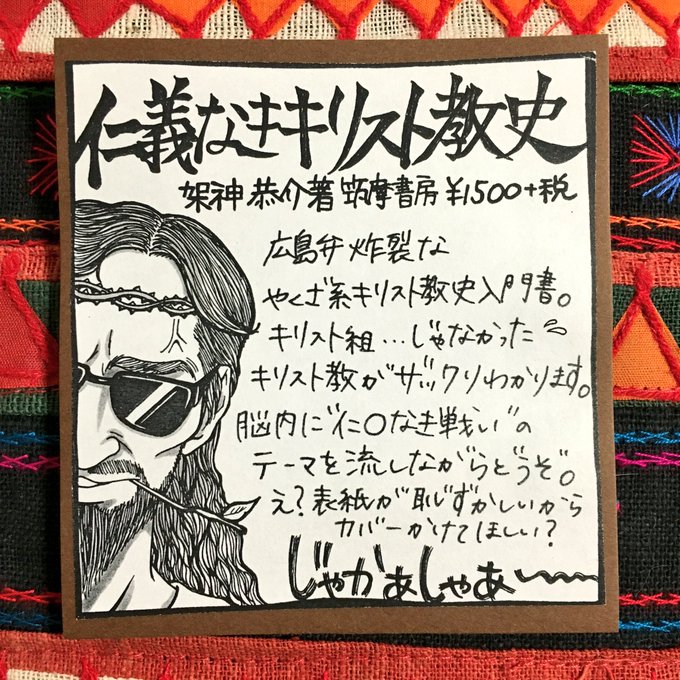 仁義なきキリスト教史
架神恭介著 筑摩書房 ¥1500+税
広島弁炸裂な
やくざ系キリスト教史入門書。
キリスト組…じゃなかった
キリスト教がザックリわかります。
脳内に"仁〇なき戦い"の
テーマを流しながらどうぞ。
え?表紙が恥ずかしいから
カバーかけてほしい?
じゃかあしゃあ〜